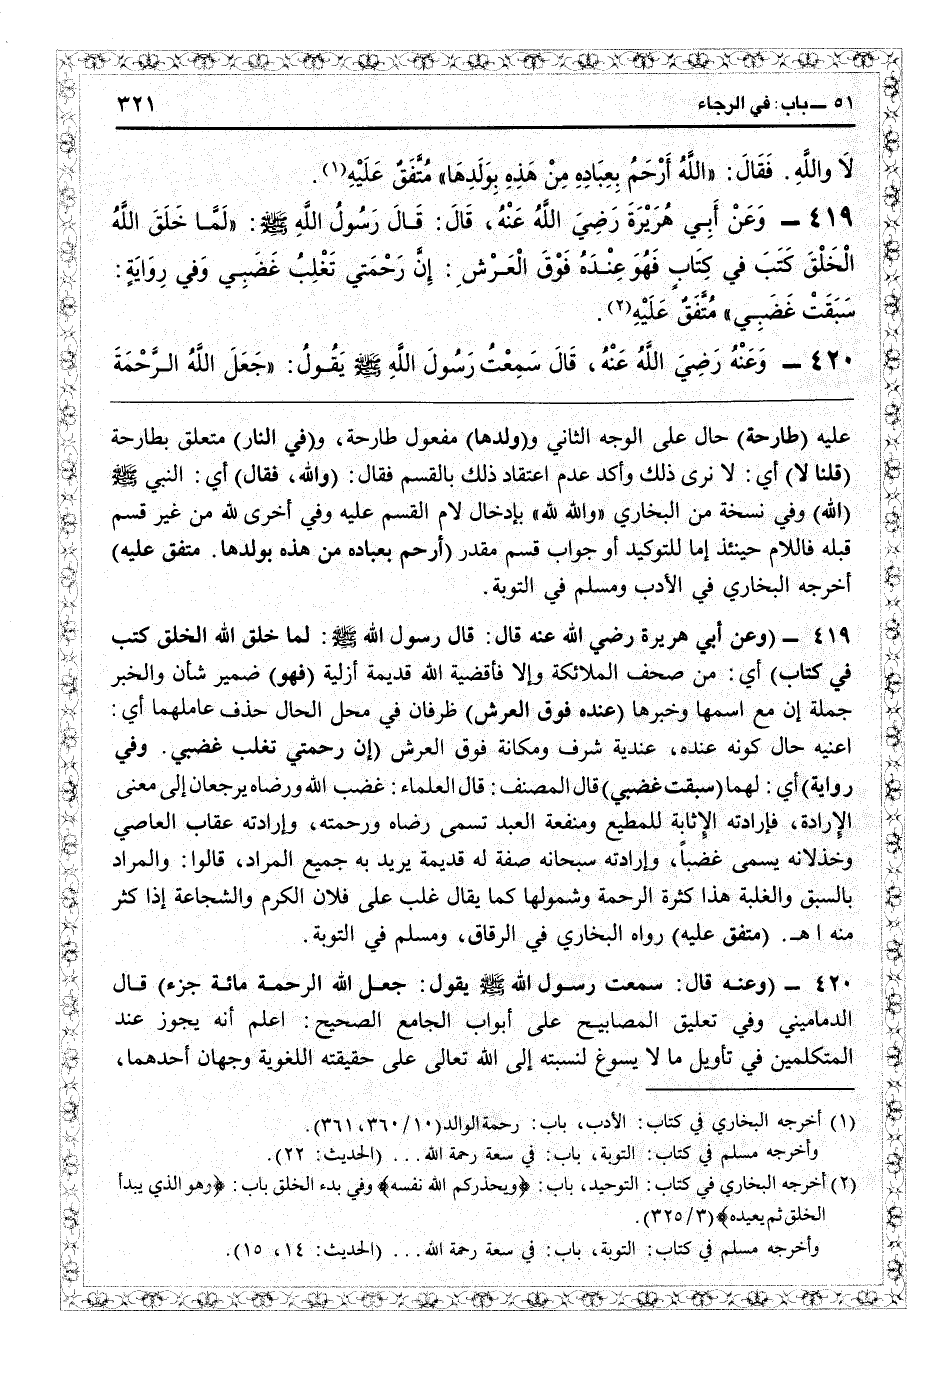 ٥١ ــ باب: في الرجاء ٣٢١
لَا واللَّهِ. فَقَالَ: «اللَّهُ أَرْحَمُ بِعِبَادِهِ مِنْ هَذِهِ بِوَلَدِهَا» مُتَّفَقٌ عَلَيْهِ(١).
٤١٩ ــ وَعَنْ أَبِي هُرَيْرَةَ رَضِيَ اللَّهُ عَنْهُ، قَالَ: قَالَ رَسُولُ اللَّهِ ﷺ: «لَمَّا خَلَقَ اللَّهُ
الْخَلْقَ كَتَبَ في كِتَابٍ فَهُوَ عِنْدَهُ فَوْقَ الْعَرْشِ: إِنَّ رَحْمَتي تَغْلِبُ غَضَبِي وَفي رِوَايَةٍ:
سَبَقَتْ غَضَبِي» مُتَّفَقٌ عَلَيْهِ(٢).
٤٢٠ ــ وَعَنْهُ رَضِيَ اللَّهُ عَنْهُ، قَالَ سَمِعْتُ رَسُولَ اللَّهِ ﷺ يَقُولُ: «جَعَلَ اللَّهُ الرَّحْمَةَ
عليه (طارحة) حال على الوجه الثاني و(ولدها) مفعول طارحة، و(في النار) متعلق بطارحة
(قلنا لا) أي: لا نرى ذلك وأكد عدم اعتقاد ذلك بالقسم فقال: (والله، فقال) أي: النبي ﷺ
(الله) وفي نسخة من البخاري «والله لله» بإدخال لام القسم عليه وفي أخرى لله من غير قسم
قبله فاللام حينئذ إما للتوكيد أو جواب قسم مقدر (أرحم بعباده من هذه بولدها. متفق عليه)
أخرجه البخاري في الأدب ومسلم في التوبة.
٤١٩ ــ (وعن أبي هريرة رضي الله عنه قال: قال رسول الله ﷺ: لما خلق الله الخلق كتب
في كتاب) أي: من صحف الملائكة وإلا فأقضية الله قديمة أزلية (فهو) ضمير شأن والخبر
جملة إن مع اسمها وخبرها (عنده فوق العرش) ظرفان في محل الحال حذف عاملهما أي:
اعنيه حال كونه عنده، عندية شرف ومكانة فوق العرش (إن رحمتي تغلب غضبي. وفي
رواية) أي: لهما (سبقت غضبي) قال المصنف: قال العلماء: غضب الله ورضاه يرجعان إلى معنى
الإرادة، فإرادته الإثابة للمطيع ومنفعة العبد تسمى رضاه ورحمته، وإرادته عقاب العاصي
وخذلانه يسمى غضباً، وإرادته سبحانه صفة له قديمة يريد به جميع المراد، قالوا: والمراد
بالسبق والغلبة هذا كثرة الرحمة وشمولها كما يقال غلب على فلان الكرم والشجاعة إذا كثر
منه ا هـ. (متفق عليه) رواه البخاري في الرقاق، ومسلم في التوبة.
٤٢٠ ــ (وعنه قال: سمعت رسول الله ﷺ يقول: جعل الله الرحمة مائة جزء) قال
الدماميني وفي تعليق المصابيح على أبواب الجامع الصحيح: اعلم أنه يجوز عند
المتكلمين في تأويل ما لا يسوغ لنسبته إلى الله تعالى على حقيقته اللغوية وجهان أحدهما،
(١) أخرجه البخاري في كتاب: الأدب، باب: رحمة الوالد (١٠/ ٣٦٠، ٣٦١).
وأخرجه مسلم في كتاب: التوبة، باب: في سعة رحمة الله... (الحديث: ٢٢).
(٢) أخرجه البخاري في كتاب: التوحيد، باب: ﴿ويحذركم الله نفسه﴾ وفي بدء الخلق باب: ﴿وهو الذي يبدأ
الخلق ثم يعيده﴾ (٣٢٥/٣).
وأخرجه مسلم في كتاب: التوبة، باب: في سعة رحمة الله... (الحديث: ١٤، ١٥).